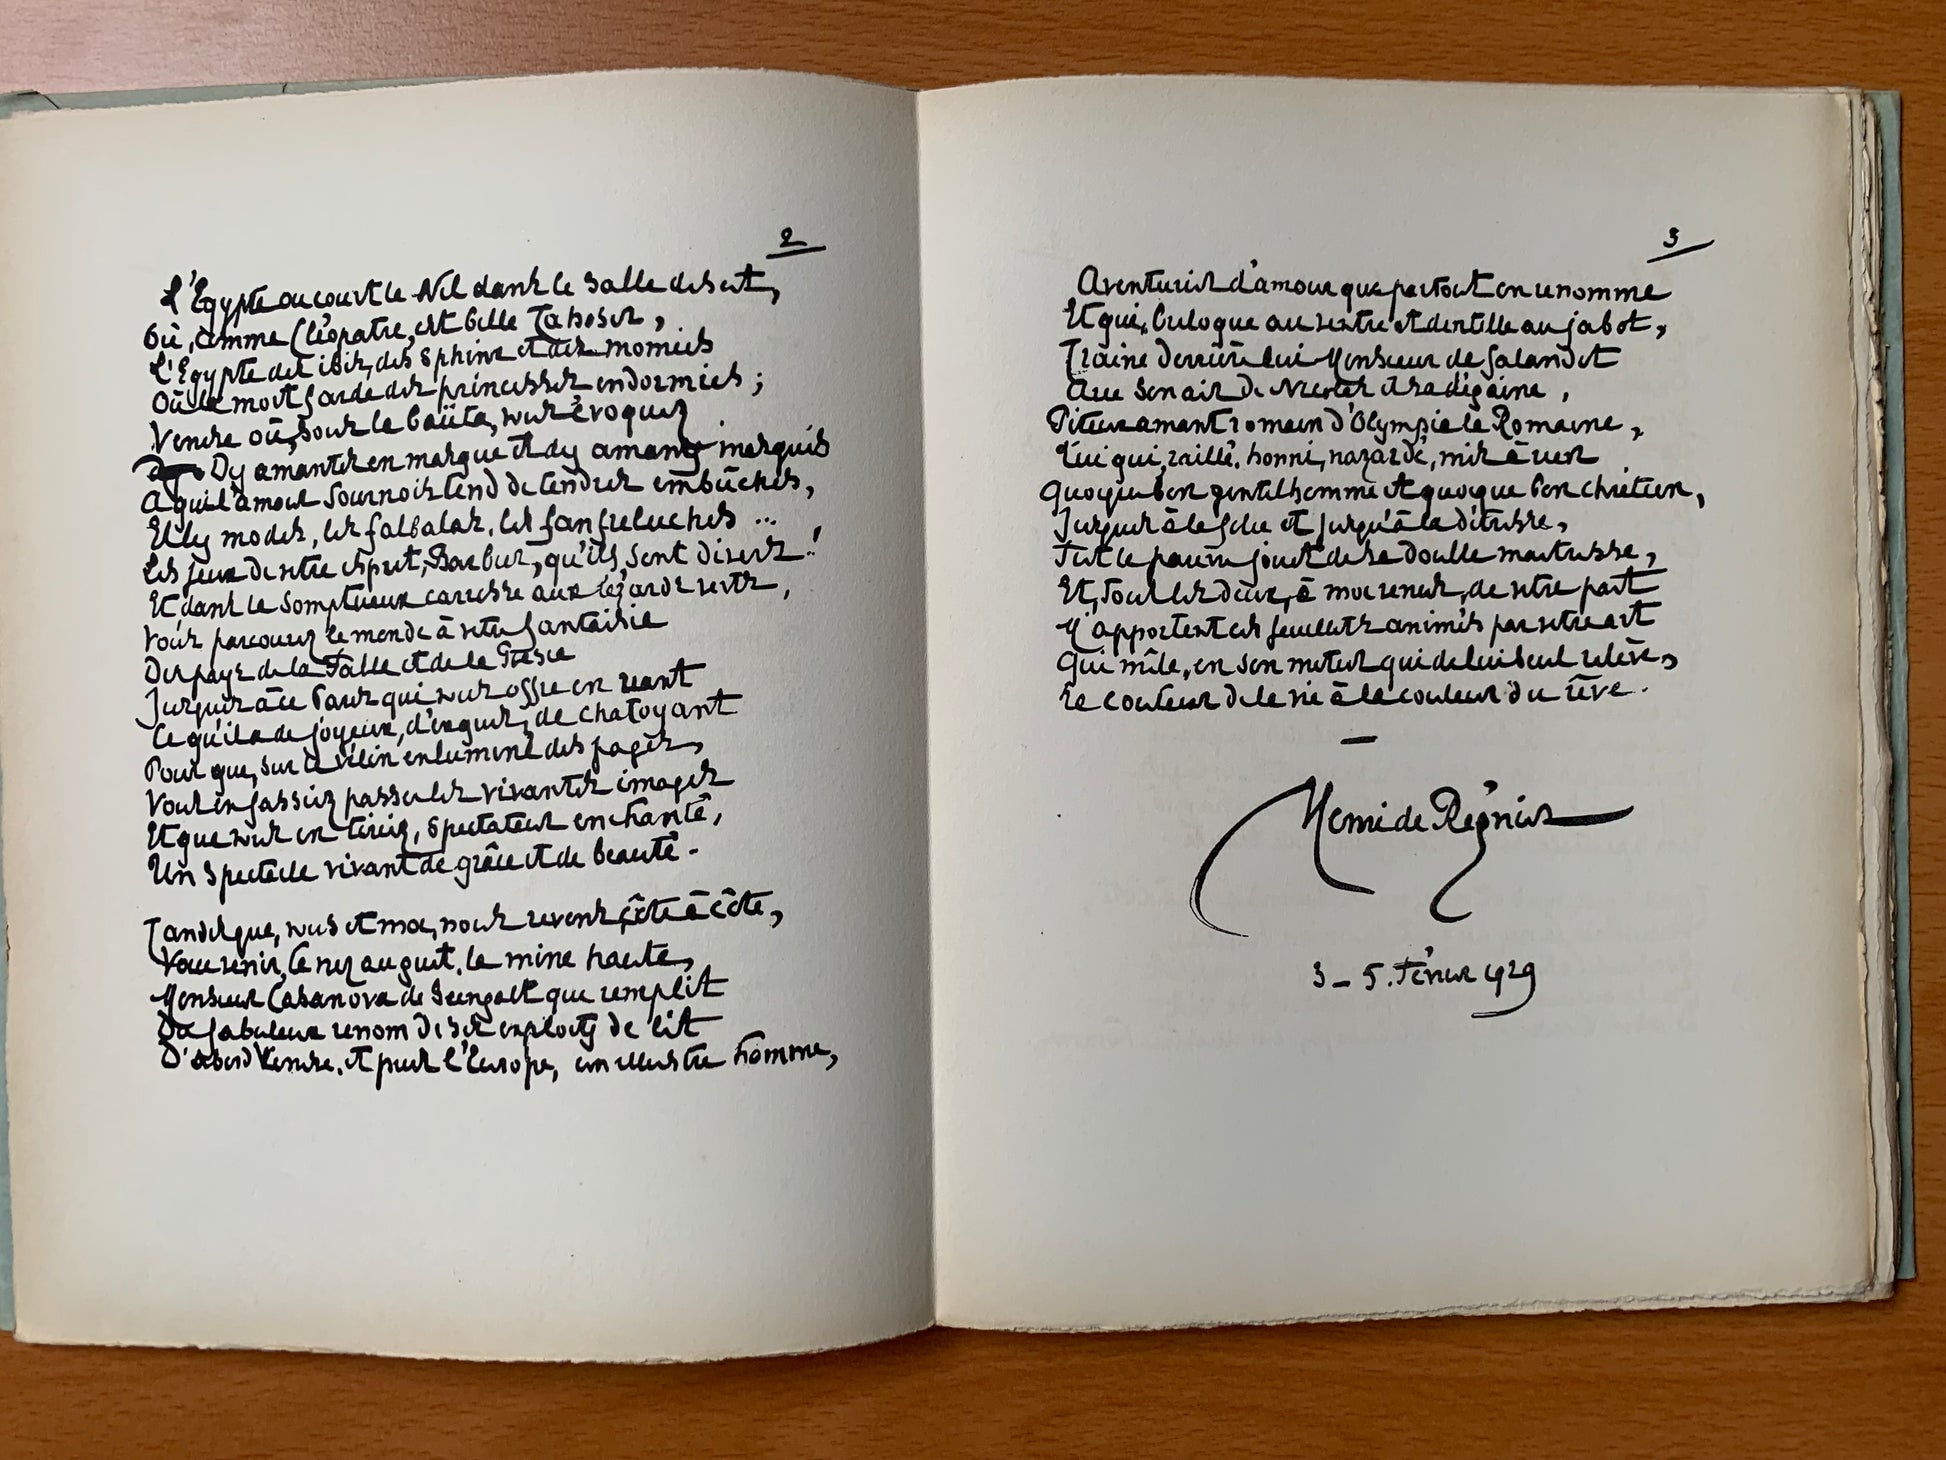 2
L'Egypte où court le Nil dans le sable désert,
Où, comme Cléopatre, est belle Tahoser,
L'Egypte des ibis, des sphinx et des momies
Où la mort garde des princesses endormies ;
Venise où, sous la baüta, vous évoquez
Dy amantes en masque et dy amants marquis
A qui l'amour sournois tend de tendres embûches,
Et les modes, les falbalas, les fanfreluches ...
Les jeux de votre esprit, Barbier, qu'ils sont divers !
Et dans le somptueux carrosse aux lézards verts,
Vous parcourez le monde à votre fantaisie
Des pays de la Fable et de la Poésie
Jusques à ce Paris qui vous offre en riant
Ce qu'il a de joyeux, d'exquis, de chatoyant
Pour que, sur le vélin enluminé des pages,
Vous en fassiez passer les vivantes images
Et que vous en tiriez, spectateur enchanté,
Un spectacle vivant de grâce et de beauté.
Tandis que, vous et moi, nous revons côte à côte,
Voici venir, le nez au guet, la mine haute,
Monsieur Casanova de Seingalt que remplit
Du fabuleux renom de ses exploits de lit
D'abord Venise, et puis l'Europe, un illustre homme,
3
Aventurier d'amour que partout on renomme
Et qui, breloque au ventre et dentelle au jabot,
Traine derrière lui Monsieur de Galandot
Avec son air de Nicolas et sa dégaine,
Piteux amant romain d'Olympia la Romaine,
Lui qui, raillé, honni, nazardé, mis à rien
Quoique bon gentilhomme et quoique bon chrétien,
Jusques à la folie et jusqu'à la détresse,
Fut le pauvre jouet de sa double maitresse,
Et, tous les deux, à moi venus, de votre part
M'apportent ces feuillets animés par votre art
Qui mêle, en son métier qui de lui seul relève,
La couleur de la vie à la couleur du rêve.
—
Henri de Régnier
3 – 5. Février 1929